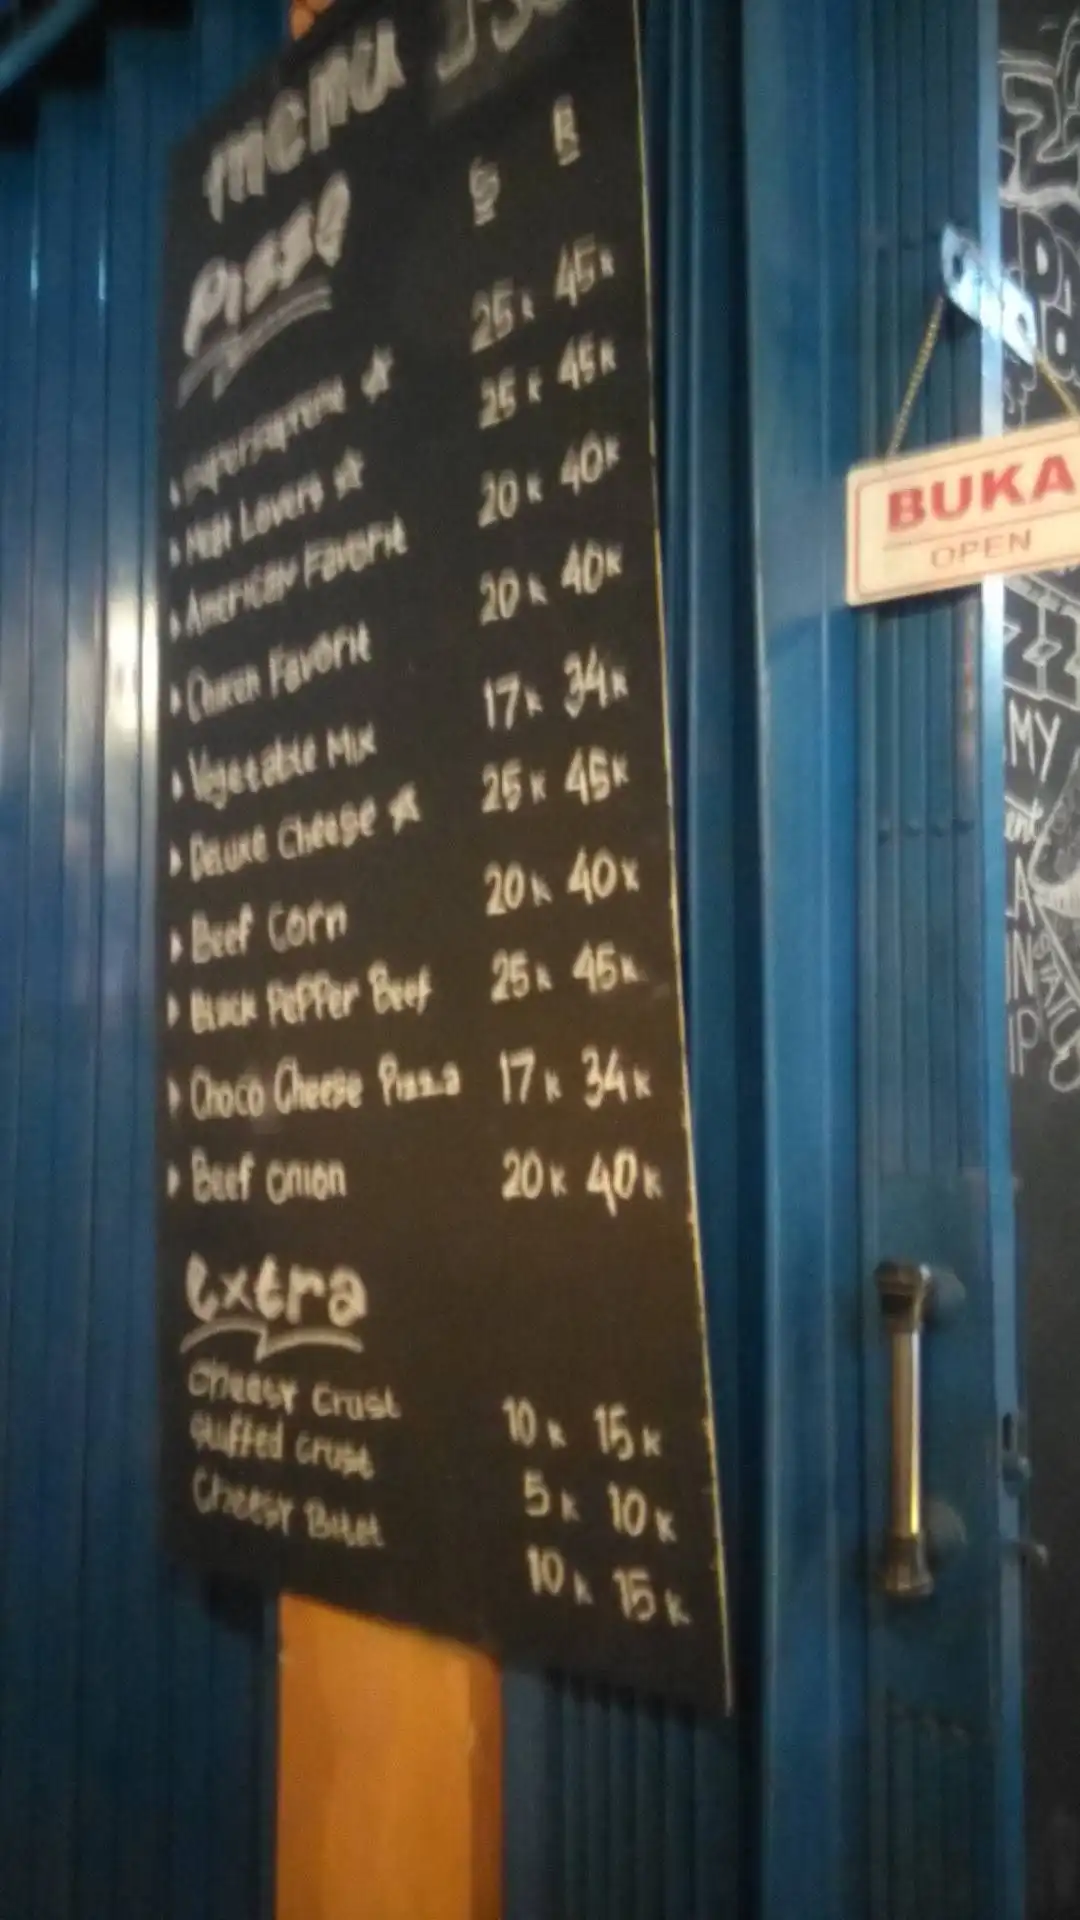 menu
Pizza S R
Supersupreme 25k 45k
Meat Lovers 25k 45k
American Favorit 20k 40k
Chicken Favorit 20k 40k
Vegetable Mix 17k 34k
Deluxe Cheese 25k 45k
Beef Corn 20k 40k
Black Pepper Beef 25k 45k
Choco Cheese Pizza 17k 34k
Beef onion 20k 40k
extra
Cheesy Crust 10k 15k
Stuffed Crust 5k 10k
Cheesy Bites 10k 15k
BUKA
OPEN
ZZ
MY